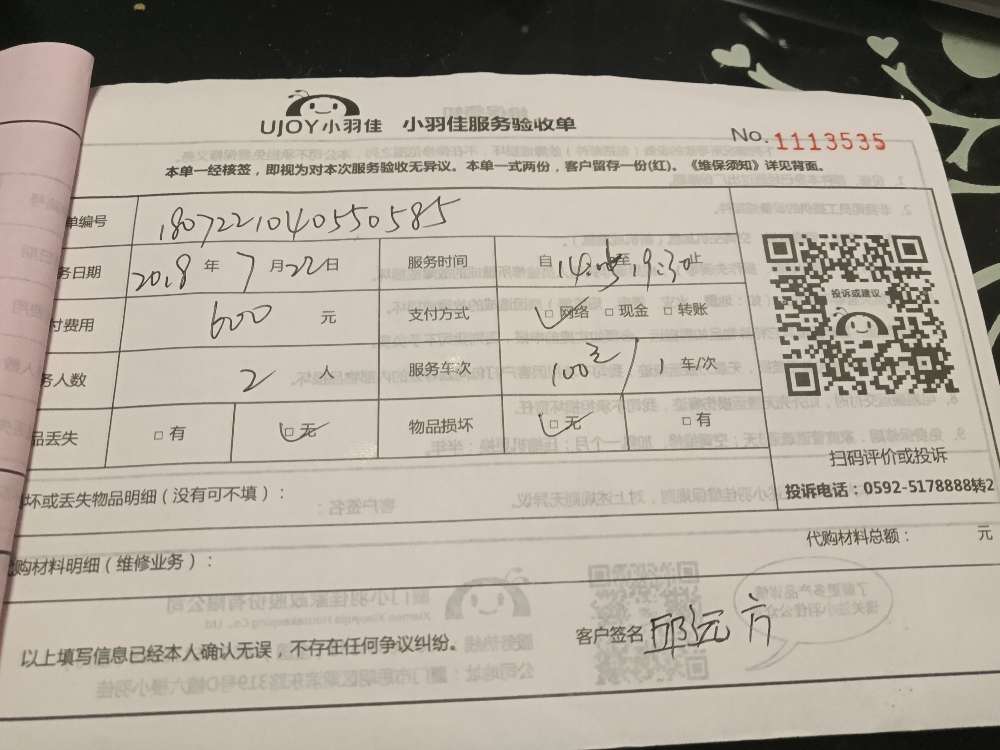 UJOY小羽佳 小羽佳服务验收单
No. 1113535
本单一经核签，即视为对本次服务验收无异议。本单一式两份，客户留存一份(红)。《维保须知》详见背面。
单编号 180722104055058585
务日期 2018 年 7 月 22 日 服务时间 自 至19:30止
付费用 600 元 支付方式 □ 网络 □ 现金 □ 转账
务人数 2 人 服务车次 100元/1 车/次
品丢失 □ 有 □ 无 物品损坏 □ 无 □ 有
投诉或建议
扫码评价或投诉
投诉电话：0592-5178888转2
坏或丢失物品明细（没有可不填）：
购材料明细（维修业务）：
代购材料总额： 元
以上填写信息已经本人确认无误，不存在任何争议纠纷。
客户签名 邱远方